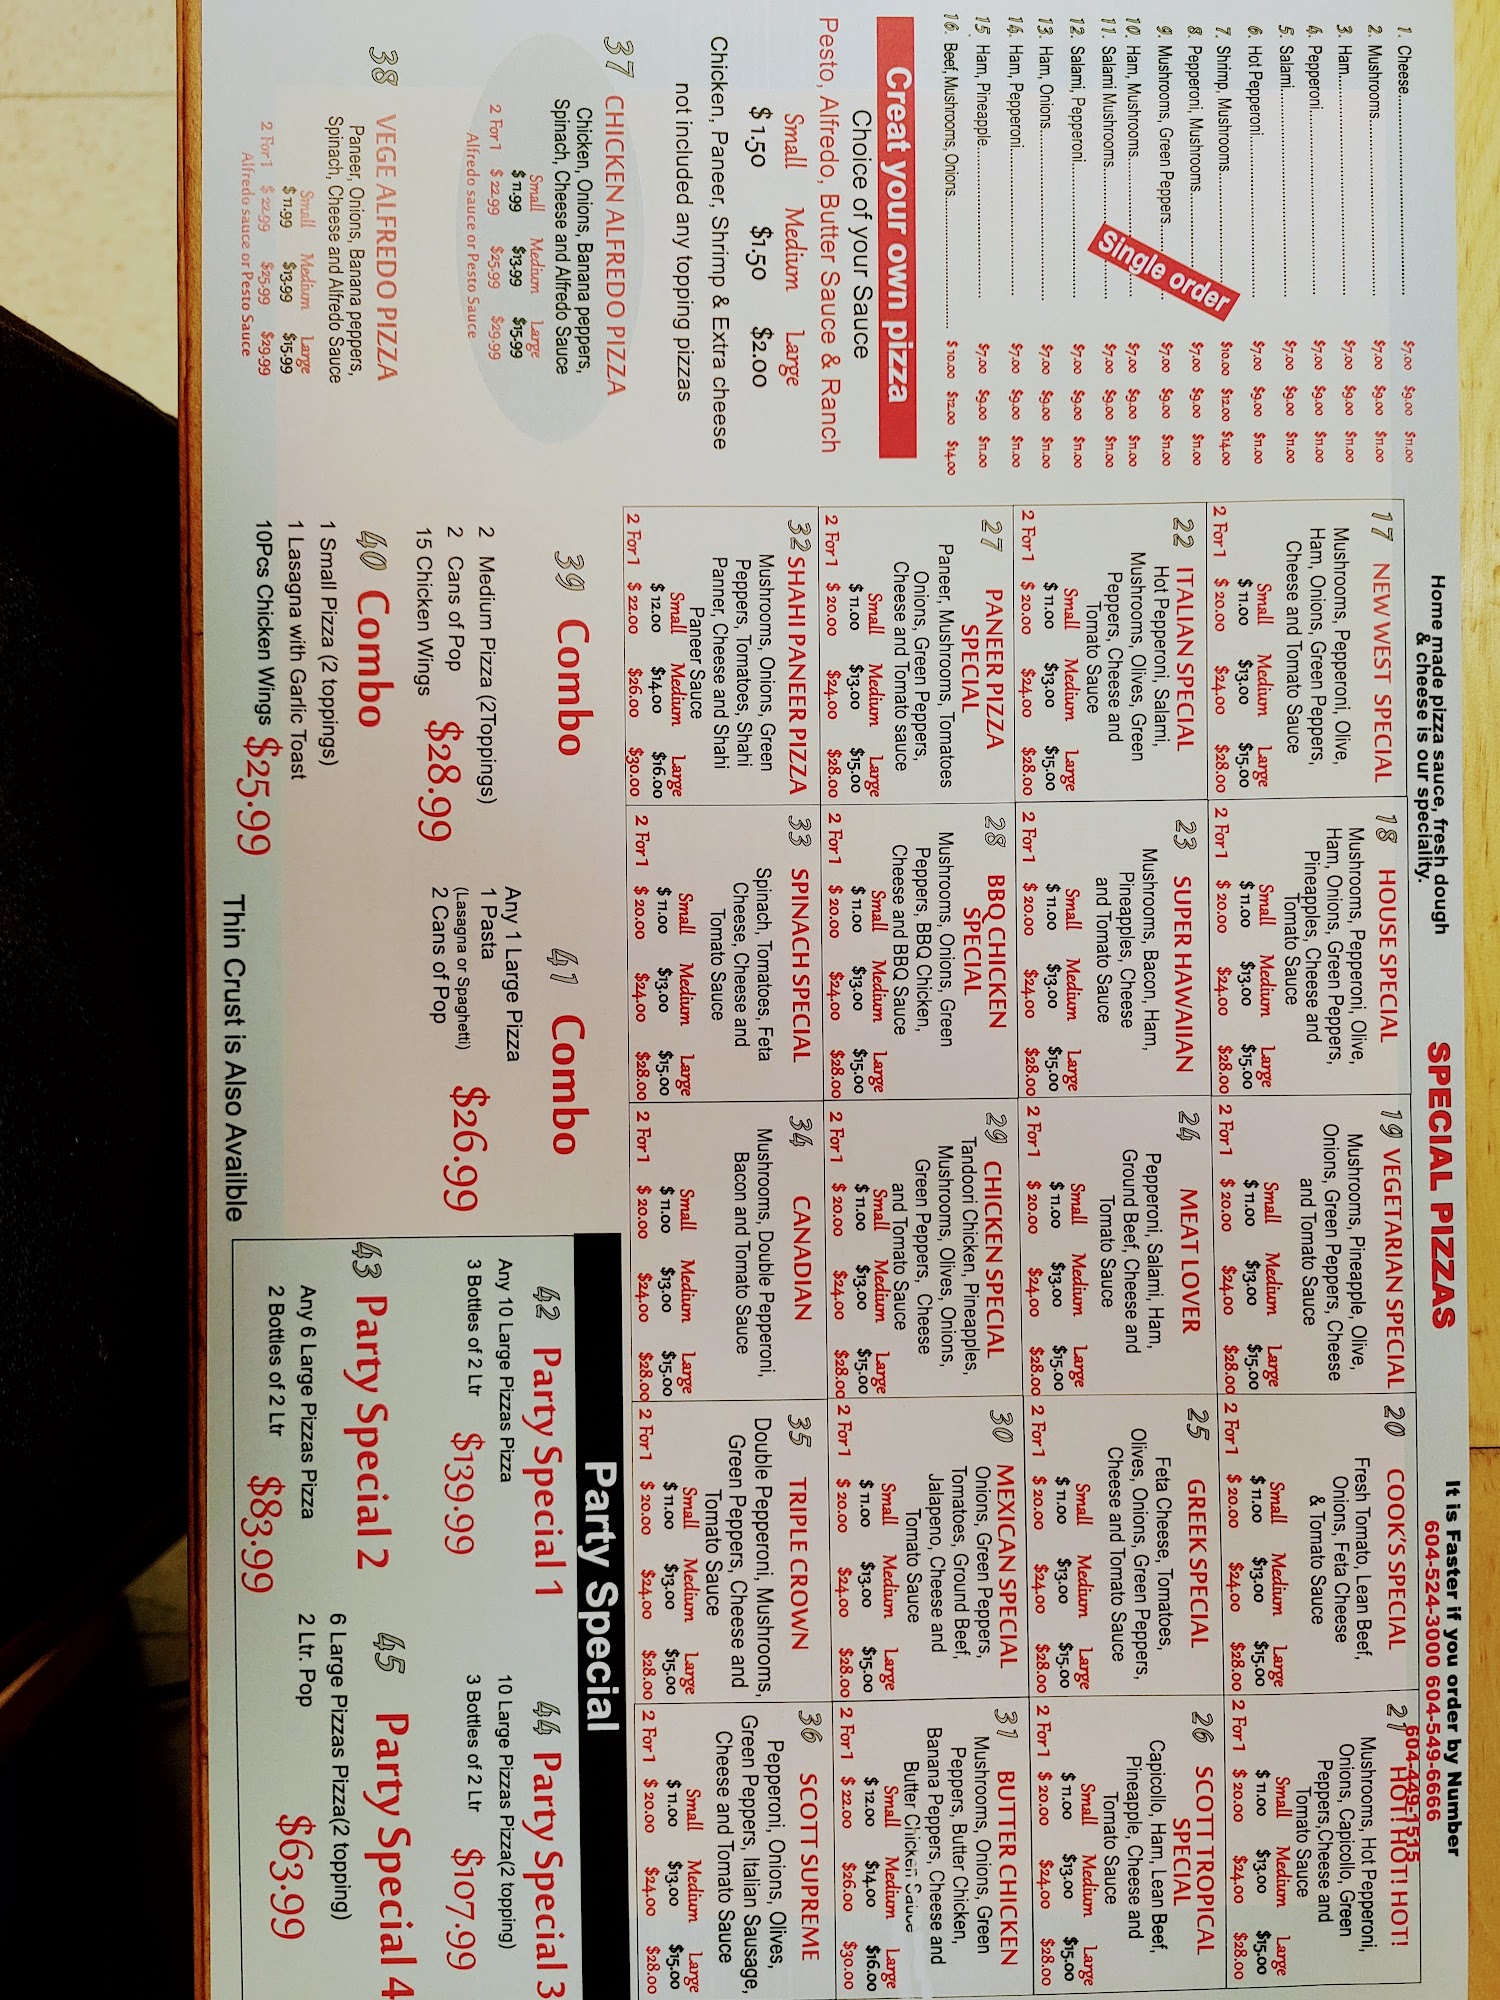 1. Cheese........ $7.00 $9.00 $11.00
2. Mushrooms........ $7.00 $9.00 $11.00
3. Ham........ $7.00 $9.00 $11.00
4. Pepperoni........ $7.00 $9.00 $11.00
5. Salami........ $7.00 $9.00 $11.00
6. Hot Pepperoni........ $7.00 $9.00 $11.00
7. Shrimp, Mushrooms........ $10.00 $12.00 $14.00
8. Pepperoni, Mushrooms........ $7.00 $9.00 $11.00
9. Mushrooms, Green Peppers........ $7.00 $9.00 $11.00
10. Ham, Mushrooms........ $7.00 $9.00 $11.00
11. Salami Mushrooms........ $7.00 $9.00 $11.00
12. Salami, Pepperoni........ $7.00 $9.00 $11.00
13. Ham, Onions........ $7.00 $9.00 $11.00
14. Ham, Pepperoni........ $7.00 $9.00 $11.00
15 Ham, Pineapple........ $7.00 $9.00 $11.00
16. Beef, Mushrooms, Onions........ $10.00 $12.00 $14.00
Single order
Creat your own pizza
Choice of your Sauce
Pesto, Alfredo, Butter Sauce & Ranch
Small Medium Large
$1.50 $1.50 $2.00
Chicken, Paneer, Shrimp & Extra cheese
not included any topping pizzas
37 CHICKEN ALFREDO PIZZA
Chicken, Onions, Banana peppers,
Spinach, Cheese and Alfredo Sauce
Small Medium Large
$11.99 $13.99 $15.99
2 For 1 $22.99 $25.99 $29.99
Alfredo sauce or Pesto Sauce
38 VEGE ALFREDO PIZZA
Paneer, Onions, Banana peppers,
Spinach, Cheese and Alfredo Sauce
Small Medium Large
$11.99 $13.99 $15.99
2 For 1 $22.99 $25.99 $29.99
Alfredo sauce or Pesto Sauce
Home made pizza sauce, fresh dough
& cheese is our speciality.
SPECIAL PIZZAS
It is Faster if you order by Number
604-524-3000 604-549-6666
604-449-1515
17 NEW WEST SPECIAL
Mushrooms, Pepperoni, Olive,
Ham, Onions, Green Peppers,
Cheese and Tomato Sauce
Small Medium Large
$11.00 $13.00 $15.00
2 For 1 $20.00 $24.00 $28.00
18 HOUSE SPECIAL
Mushrooms, Pepperoni, Olive,
Ham, Onions, Green Peppers,
Pineapples, Cheese and
Tomato Sauce
Small Medium Large
$11.00 $13.00 $15.00
2 For 1 $20.00 $24.00 $28.00
19 VEGETARIAN SPECIAL
Mushrooms, Pineapple, Olive,
Onions, Green Peppers, Cheese
and Tomato Sauce
Small Medium Large
$11.00 $13.00 $15.00
2 For 1 $20.00 $24.00 $28.00
20 COOK'S SPECIAL
Fresh Tomato, Lean Beef,
Onions, Feta Cheese
& Tomato Sauce
Small Medium Large
$11.00 $13.00 $15.00
2 For 1 $20.00 $24.00 $28.00
21 HOT! HOT! HOT!
Mushrooms, Hot Pepperoni,
Onions, Capicollo, Green
Peppers,Cheese and
Tomato Sauce
Small Medium Large
$11.00 $13.00 $15.00
2 For 1 $20.00 $24.00 $28.00
22 ITALIAN SPECIAL
Hot Pepperoni, Salami,
Mushrooms, Olives, Green
Peppers, Cheese and
Tomato Sauce
Small Medium Large
$11.00 $13.00 $15.00
2 For 1 $20.00 $24.00 $28.00
23 SUPER HAWAIIAN
Mushrooms, Bacon, Ham,
Pineapples, Cheese
and Tomato Sauce
Small Medium Large
$11.00 $13.00 $15.00
2 For 1 $20.00 $24.00 $28.00
24 MEAT LOVER
Pepperoni, Salami, Ham,
Ground Beef, Cheese and
Tomato Sauce
Small Medium Large
$11.00 $13.00 $15.00
2 For 1 $20.00 $24.00 $28.00
25 GREEK SPECIAL
Feta Cheese, Tomatoes,
Olives, Onions, Green Peppers,
Cheese and Tomato Sauce
Small Medium Large
$11.00 $13.00 $15.00
2 For 1 $20.00 $24.00 $28.00
26 SCOTT TROPICAL
SPECIAL
Capicollo, Ham, Lean Beef,
Pineapple, Cheese and
Tomato Sauce
Small Medium Large
$11.00 $13.00 $15.00
2 For 1 $20.00 $24.00 $28.00
27 PANEER PIZZA
SPECIAL
Paneer, Mushrooms, Tomatoes
Onions, Green Peppers,
Cheese and Tomato sauce
Small Medium Large
$11.00 $13.00 $15.00
2 For 1 $20.00 $24.00 $28.00
28 BBQ CHICKEN
SPECIAL
Mushrooms, Onions, Green
Peppers, BBQ Chicken,
Cheese and BBQ Sauce
Small Medium Large
$11.00 $13.00 $15.00
2 For 1 $20.00 $24.00 $28.00
29 CHICKEN SPECIAL
Tandoori Chicken, Pineapples,
Mushrooms, Olives, Onions,
Green Peppers, Cheese
and Tomato Sauce
Small Medium Large
$11.00 $13.00 $15.00
2 For 1 $20.00 $24.00 $28.00
30 MEXICAN SPECIAL
Onions, Green Peppers,
Tomatoes, Ground Beef,
Jalapeno, Cheese and
Tomato Sauce
Small Medium Large
$11.00 $13.00 $15.00
2 For 1 $20.00 $24.00 $28.00
31 BUTTER CHICKEN
Mushrooms, Onions, Green
Peppers, Butter Chicken,
Banana Peppers, Cheese and
Butter Chicken Sauce
Small Medium Large
$12.00 $14.00 $16.00
2 For 1 $22.00 $26.00 $30.00
32 SHAHI PANEER PIZZA
Mushrooms, Onions, Green
Peppers, Tomatoes, Shahi
Panner, Cheese and Shahi
Paneer Sauce
Small Medium Large
$12.00 $14.00 $16.00
2 For 1 $22.00 $26.00 $30.00
33 SPINACH SPECIAL
Spinach, Tomatoes, Feta
Cheese, Cheese and
Tomato Sauce
Small Medium Large
$11.00 $13.00 $15.00
2 For 1 $20.00 $24.00 $28.00
34 CANADIAN
Mushrooms, Double Pepperoni,
Bacon and Tomato Sauce
Small Medium Large
$11.00 $13.00 $15.00
2 For 1 $20.00 $24.00 $28.00
35 TRIPLE CROWN
Double Pepperoni, Mushrooms,
Green Peppers, Cheese and
Tomato Sauce
Small Medium Large
$11.00 $13.00 $15.00
2 For 1 $20.00 $24.00 $28.00
36 SCOTT SUPREME
Pepperoni, Onions, Olives,
Green Peppers, Italian Sausage,
Cheese and Tomato Sauce
Small Medium Large
$11.00 $13.00 $15.00
2 For 1 $20.00 $24.00 $28.00
39 Combo
2 Medium Pizza (2Toppings)
2 Cans of Pop
15 Chicken Wings $28.99
40 Combo
1 Small Pizza (2 toppings)
1 Lasagna with Garlic Toast
10Pcs Chicken Wings $25.99
41 Combo
Any 1 Large Pizza
1 Pasta
(Lasagna or Spaghetti)
2 Cans of Pop $26.99
Thin Crust is Also Availble
Party Special
42 Party Special 1
Any 10 Large Pizzas Pizza
3 Bottles of 2 Ltr $139.99
43 Party Special 2
Any 6 Large Pizzas Pizza
2 Bottles of 2 Ltr $83.99
44 Party Special 3
10 Large Pizzas Pizza(2 topping)
3 Bottles of 2 Ltr $107.99
45 Party Special 4
6 Large Pizzas Pizza(2 topping)
2 Ltr. Pop $63.99